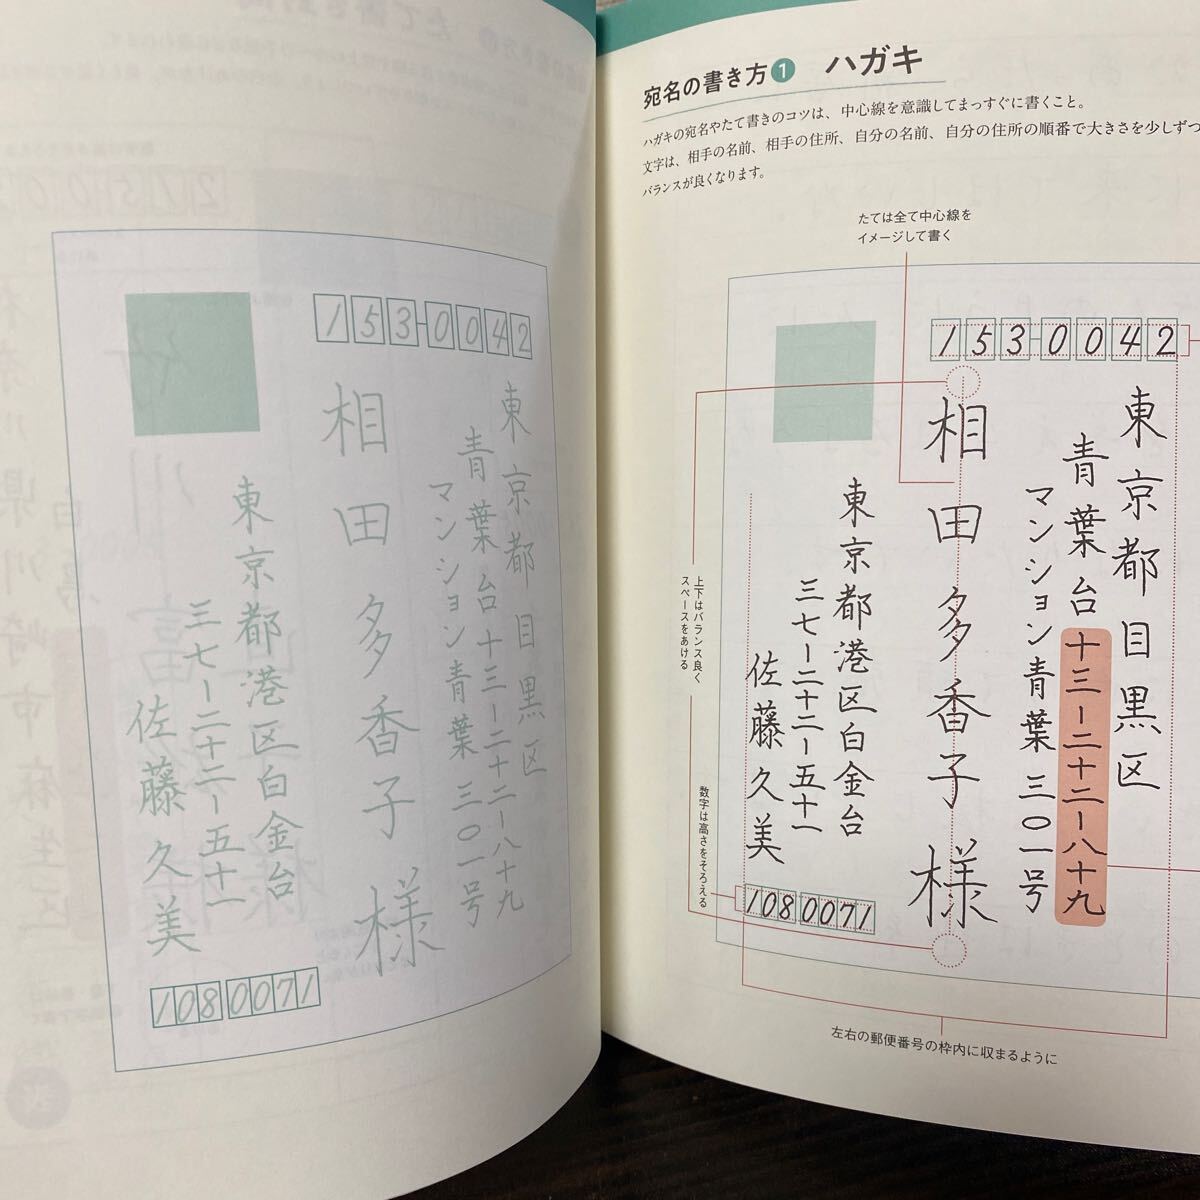 153-0042
東京都目黒区
青葉台十三ー二十二ー八十九
マンション青葉三〇一号
相田多香子様
東京都港区白金台
三七ー二十二ー五十一
佐藤久美
1080071
宛名の書き方1 ハガキ
ハガキの宛名やたて書きのコツは、中心線を意識してまっすぐに書くこと。
文字は、相手の名前、相手の住所、自分の名前、自分の住所の順番で大きさを少しずつ
バランスが良くなります。
たては全て中心線を
イメージして書く
153-0042
東京都目黒区
青葉台十三ー二十二ー八十九
マンション青葉三〇一号
相田多香子様
東京都港区白金台
三七ー二十二ー五十一
佐藤久美
1080071
上下はバランス良く
スペースをあける
数字は高さをそろえる
左右の郵便番号の枠内に収まるように